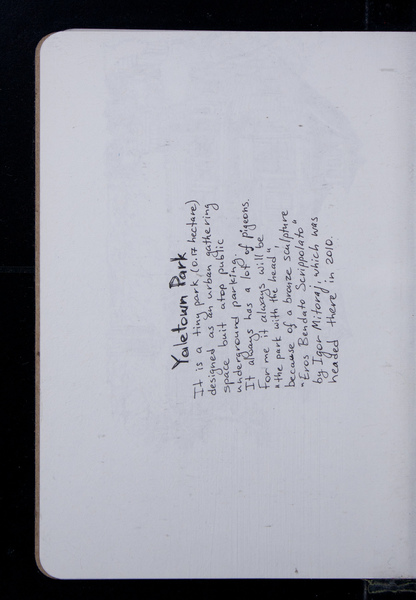 Yaletown Park
It is a tiny park (0.17 hectare)
designed as an urban gathering
space buit atop public
underground parking.
It always has a lot of pigeons.
For me it always will be
"the park with the head",
because of a bronze sculpture
"Eros Bendato Scrippolato"
by Igor Mitoraj, which was
headed there in 2010.